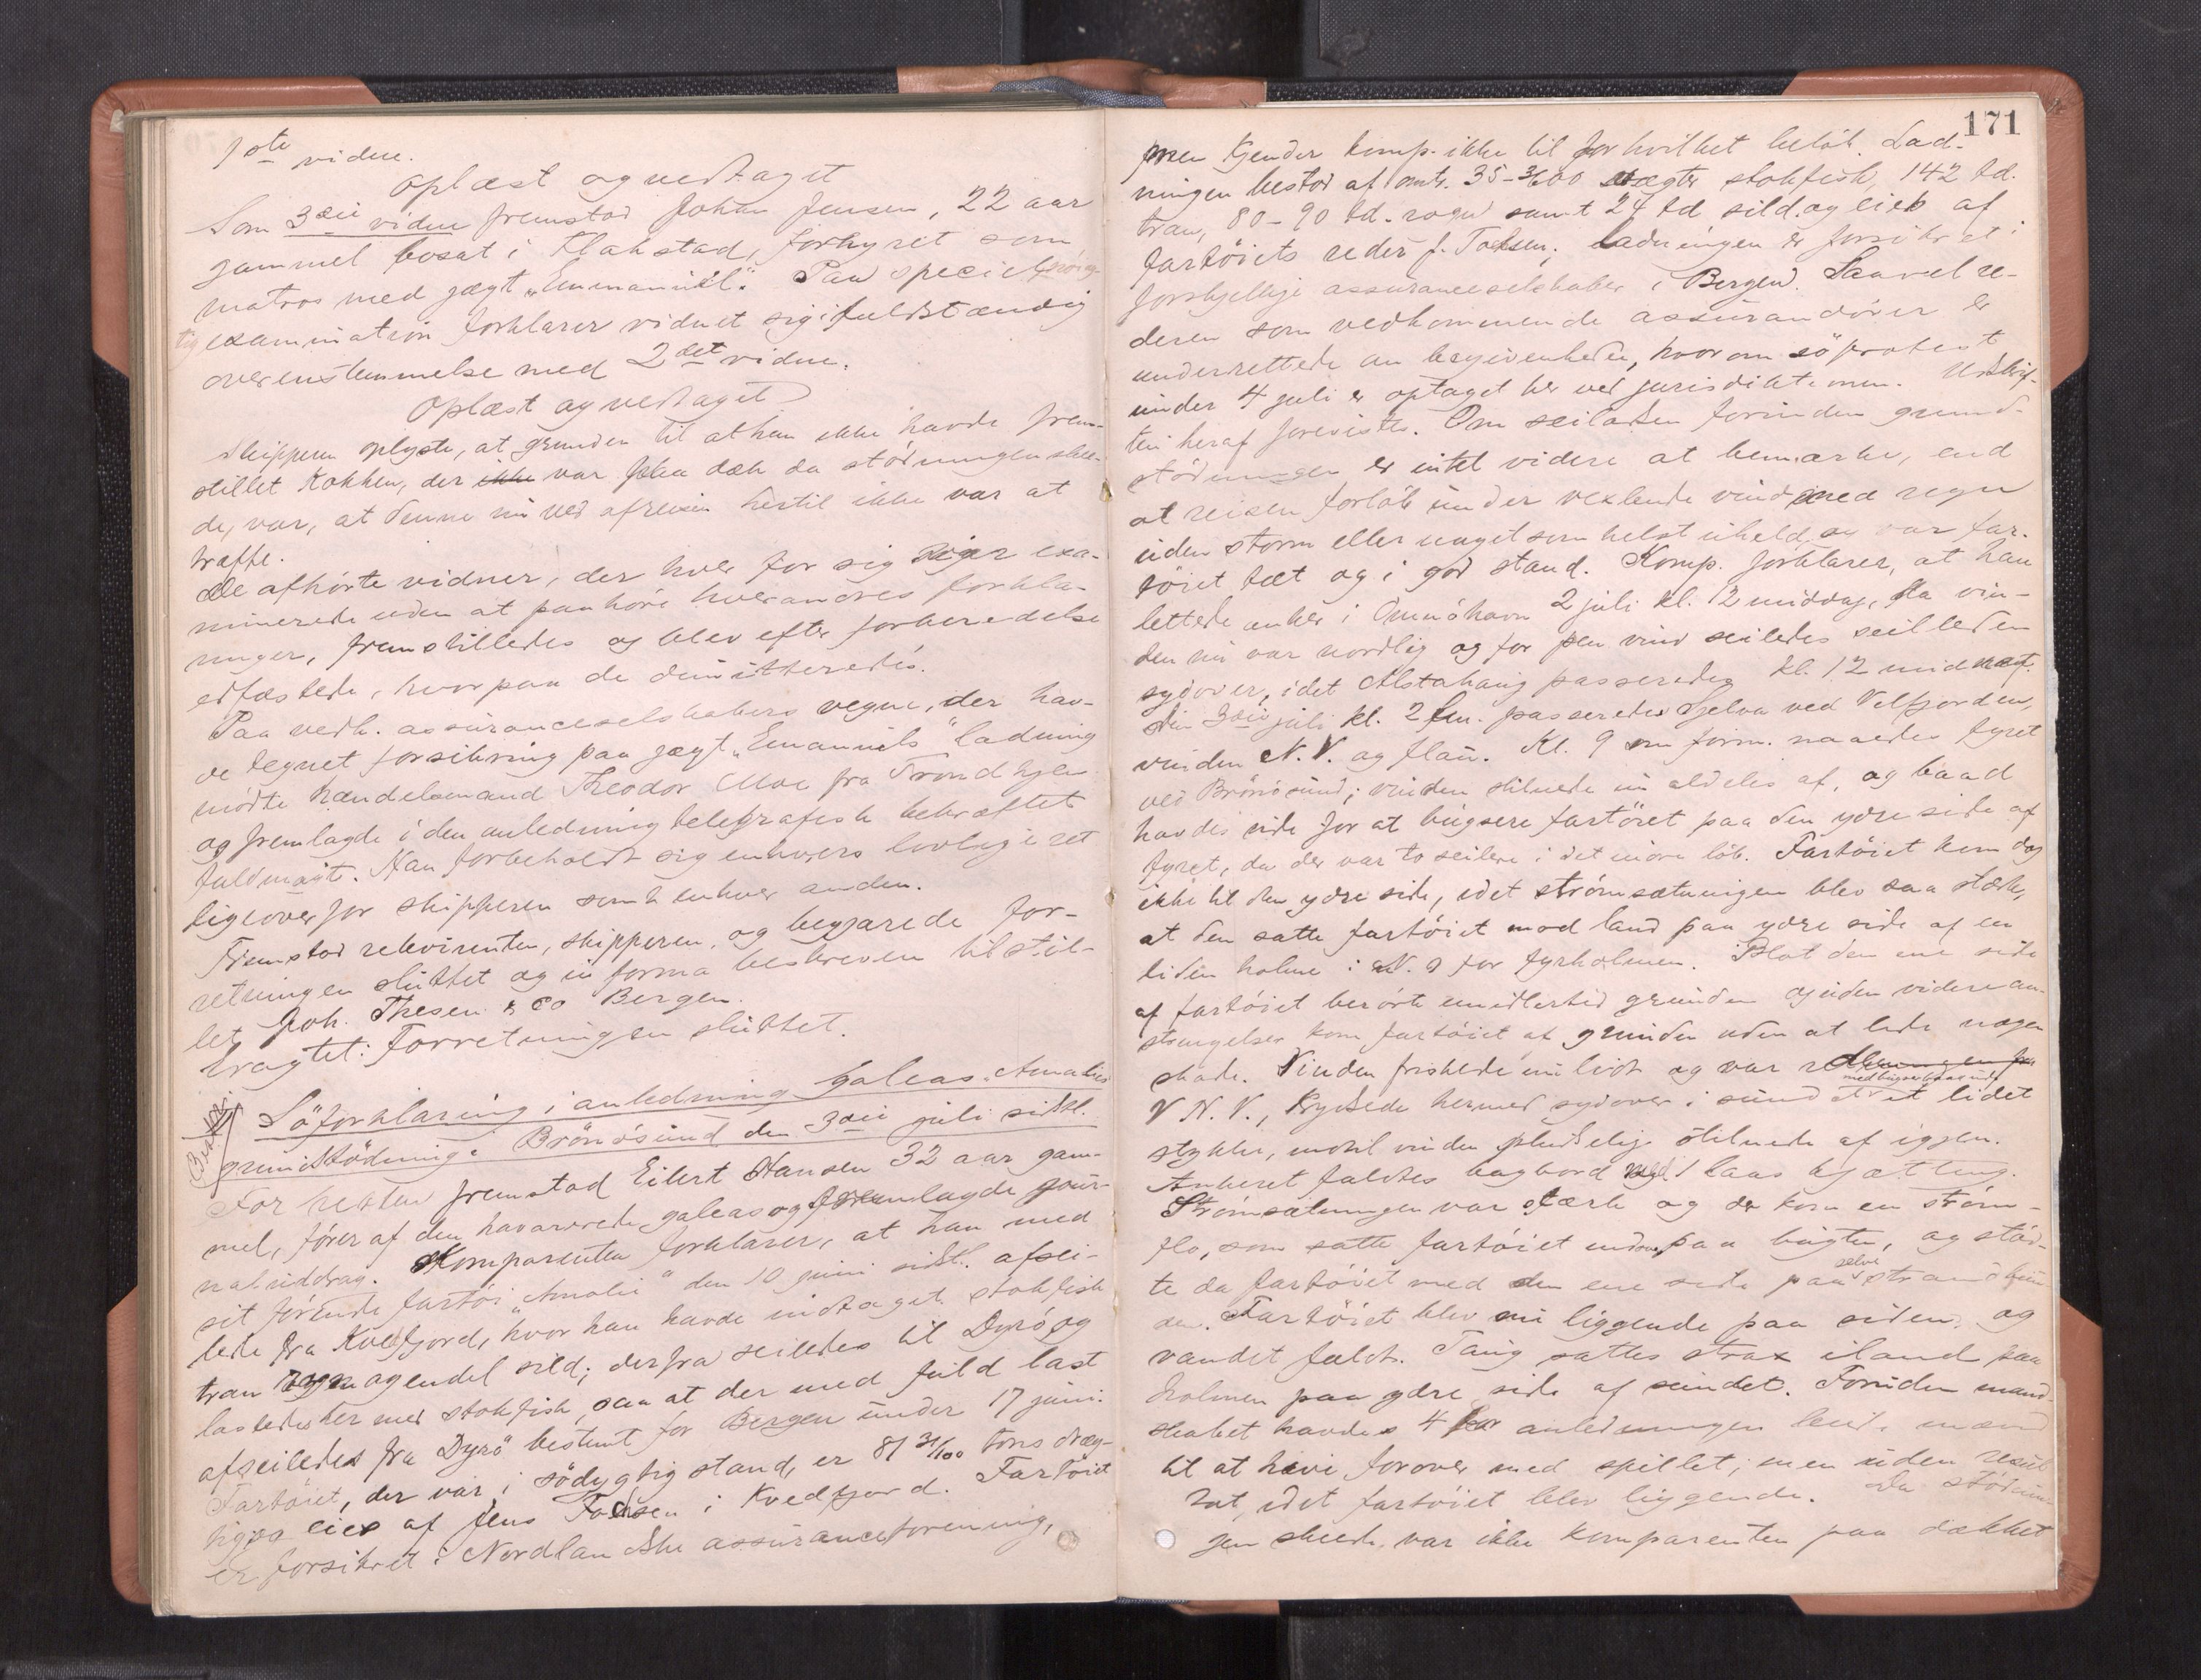 1ste vidne.
Oplæst og vedtaget
Som 3die vidne fremstod Johan Jensen, 22 aar
gammel bosat i Klakstad, forhyret som
matros med jægt "Emmanuel". Paa speciel
examination forklarer vidnet sig i fuldstændig
overenstemmelse med 2det vidne.
Oplæst og vedtaget
Skipperen oplyste, at grunden til at han ikke havde frem-
stillet Kokken, der ikke var paa dæk da stödningen skee-
de, var, at denne nu ved afreisen hertil ikke var at
træffe.
De afhörte vidner, der hver for sig exa-
minerede uden at paahöre hverandres forkla-
ringer, fremstilledes og blev efter forberedelse
edfæstede, hvorpaa de dimitteredes.
Paa vedk. assuranceselskabers vegne, der hav-
de tegnet forsikring paa jægt "Emanuels" ladning
mödte handelsmand Theodor Moe fra Trondhjem
og fremlagde i den anledning telegrafisk bekræftet
fuldmagt. Han forbeholdt sig enhvers lovlige ret
ligeoverfor skipperen samt enhver anden.
Fremstod rekvirenten, skipperen, og begjærede for-
retningen sluttet og in forma beskreven tilstil-
let Joh. Thesen & Co Bergen.
Eragtet: Forretningen sluttet.
Söforklaring i anledning galeas "Amalies
grundstödning i Brönösund den 3die juli sidstl.
For retten fremstod Eilert Hansen 32 aar gam-
mel, förer af den havarerede galeas og fremlagde jour-
naluddrag. Komparenten forklarer, at han med
sit förende fartöi "Amalie" den 10 juni sidstl. afsei-
lede fra Kvedfjord, hvor han havde indtaget stokfisk
tran rogn og endel sild; derfra seiledes til Dyrö og
lastedes her med stokfisk, saa at der med fuld last
afseiledes fra Dyrö bestemt for Bergen under 17 juni.
Fartöiet, der var i södygtig stand, er 81 31/100 tons dræg-
tig, eies af Jens i Kvedfjord. Fartöiet
er forsikret i Nordlandske assuranceforening,
171
men kjender komp. ikke til for hvilket belöb. Lad-
ningen bestod af omtr. 35-3600 vægter stokfisk, 142 td.
tran, 80-90 td. rogn samt 24 td sild, og eies af
fartöiets reder J. ; ladningen er forsikret i
forskjellige assuranceselskaber i Bergen. Saavel re-
deren som vedkommende assurandörer er
underrettede om begivenheden, hvorom söprotest
under 4 juli er optaget her ved jurisdiktionen. Udskrif-
ten heraf forevistes. Om seiladsen forinden grund-
stödningen er intet videre at bemærke, end
at reisen forlöb under vexlende vind med regn
uden storm eller noget som helst uheld, og var far-
töiet tæt og i god stand. Komp. forklarer, at han
lettede anker i havn 2 juli kl. 12 middag, da vin-
den nu var nordlig og for pen vind seiledes seilleden
sydover, idet Alstahaug passeredes kl. 12 midnat.
Den 3die juli kl. 2 fm. passeredes ved Velfjorden,
vinden N.V. og flau. Kl. 9 om form. naaedes fyret
ved Brönösund; vinden stilnede nu aldeles af, og baad
havdes ude for at bugsere fartöiet paa den ydre side af
fyret, da der var to seilere i det indre löb. Fartöiet kom dog
ikke til den ydre side, idet strömsætningen blev saa stærk,
at den satte fartöiet mod land paa ydre side af en
liden holme i N. O for fyrholmen. Blot den ene side
af fartöiet berörte imidlertid grunden og uden videre an-
strengelser kom fartöiet af grunden uden at lide nogen
skade. Vinden friskede nu lidt og var
V N. V., krydsede hermed sydover i sundet et lidet
stykke, indtil vinden pludselig stilnede af igjen.
Ankeret faldtes bagbord med 1 laas kjætting.
Strömsætningen var stærk og der kom en ström-
flo, som satte fartöiet indover paa bugten, og stöd-
te da fartöiet med den ene side paa selve strandbun-
den. Fartöiet blev nu liggende paa siden, og
vandet faldt. Taug sattes strax iland paa
holmen paa ydre side af sundet. Foruden mand-
skabet havdes 4 for anledningen leiede mænd
til at hive forover med spillet; men uden resul-
tat, idet fartöiet blev liggende. Da stödnin-
gen skeede, var ikke komparenten paa dækket